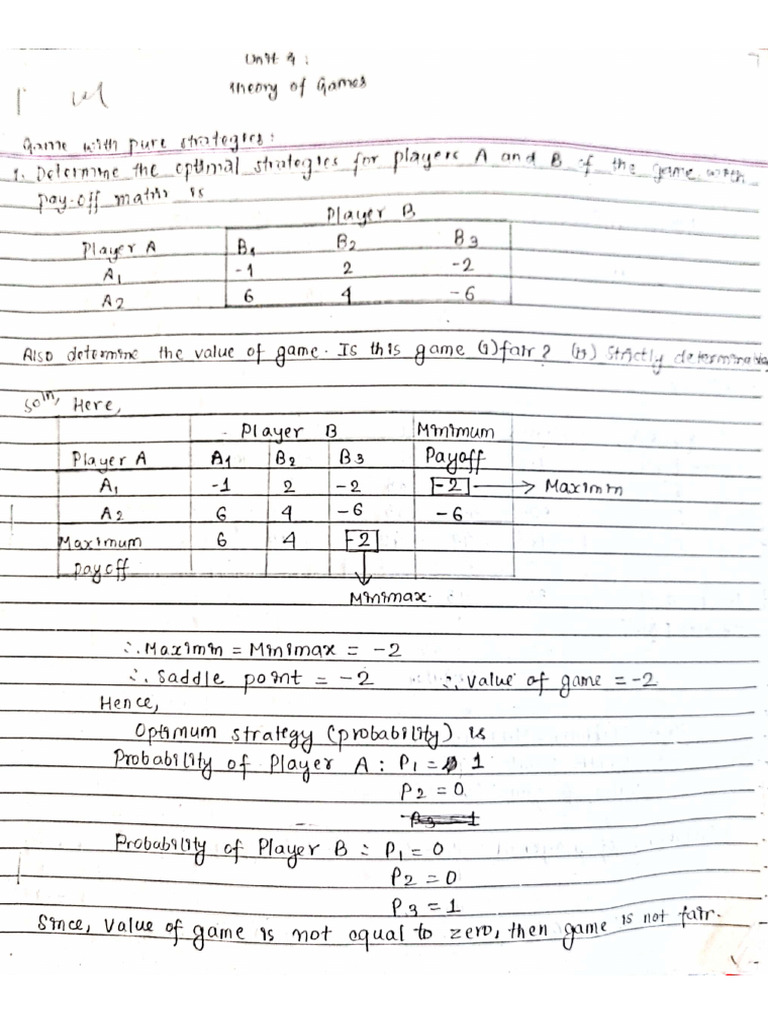 Unit 4:
Theory of Games
Game with pure strategies:
1. Determine the optimal strategies for players A and B of the game with
pay-off matrix is
Player B
Player A B1 B2 B3
A1 -1 2 -2
A2 6 4 -6
Also determine the value of game. Is this game (i) fair? (ii) strictly determinable
Soln, Here,
Player B Minimum
Player A A1 B2 B3 Payoff
A1 -1 2 -2 -2 → Maximin
A2 6 4 -6 -6
Maximum 6 4 -2
payoff
Minimax.
∴ Maximin = Minimax = -2
∴ Saddle point = -2 ∴ value of game = -2
Hence,
Optimum strategy (probability) is
Probability of Player A: P1 = 1
P2 = 0
P3 = 1
Probability of Player B: P1 = 0
P2 = 0
P3 = 1
Since, value of game is not equal to zero, then game is not fair.